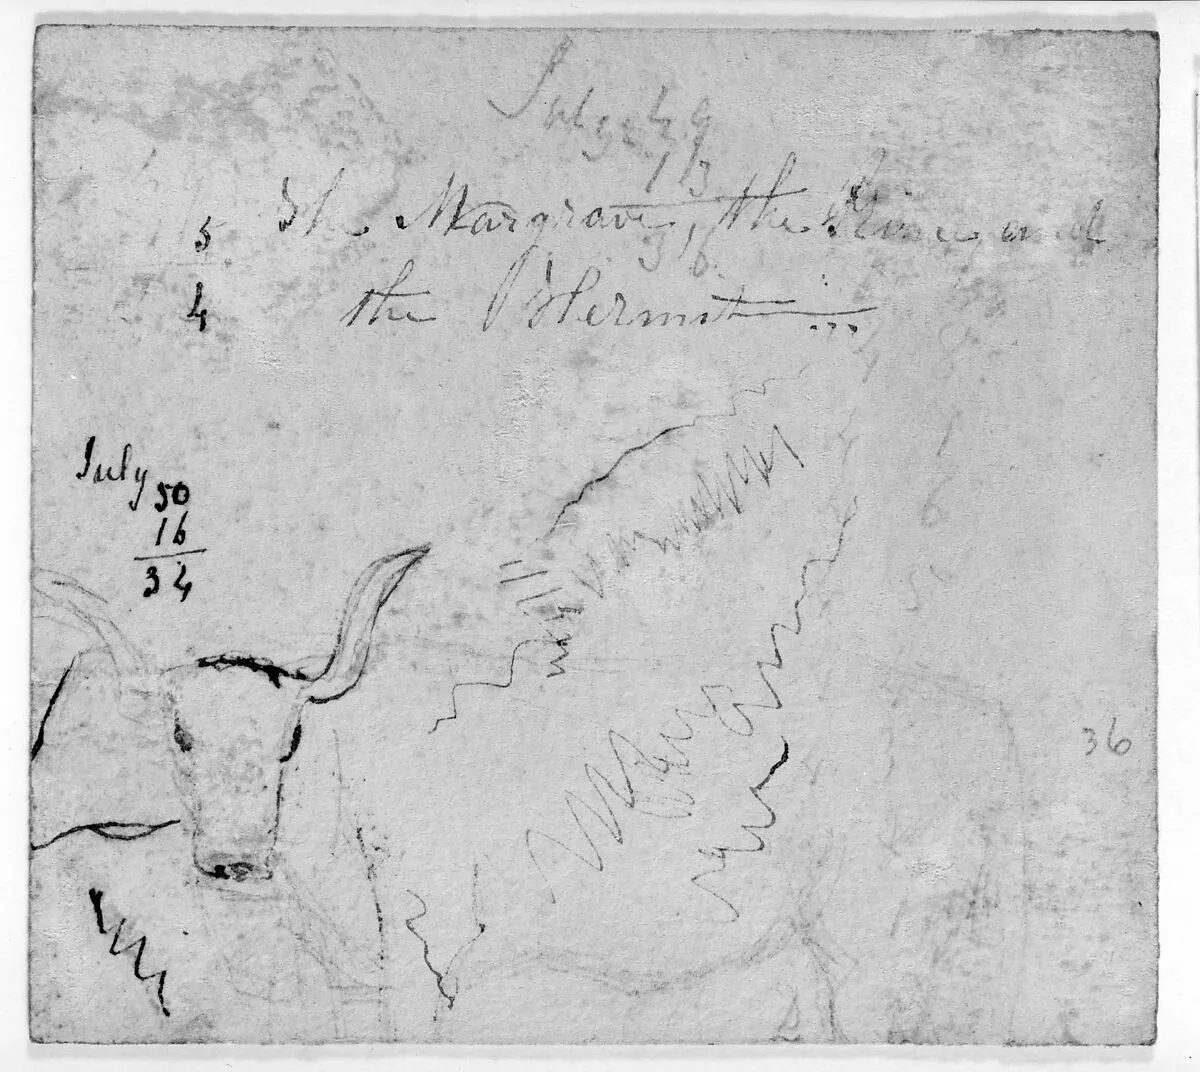 July 49
13
36
5 The Margrave, the King and
4 the Hermit ...
July 50
16
34
36